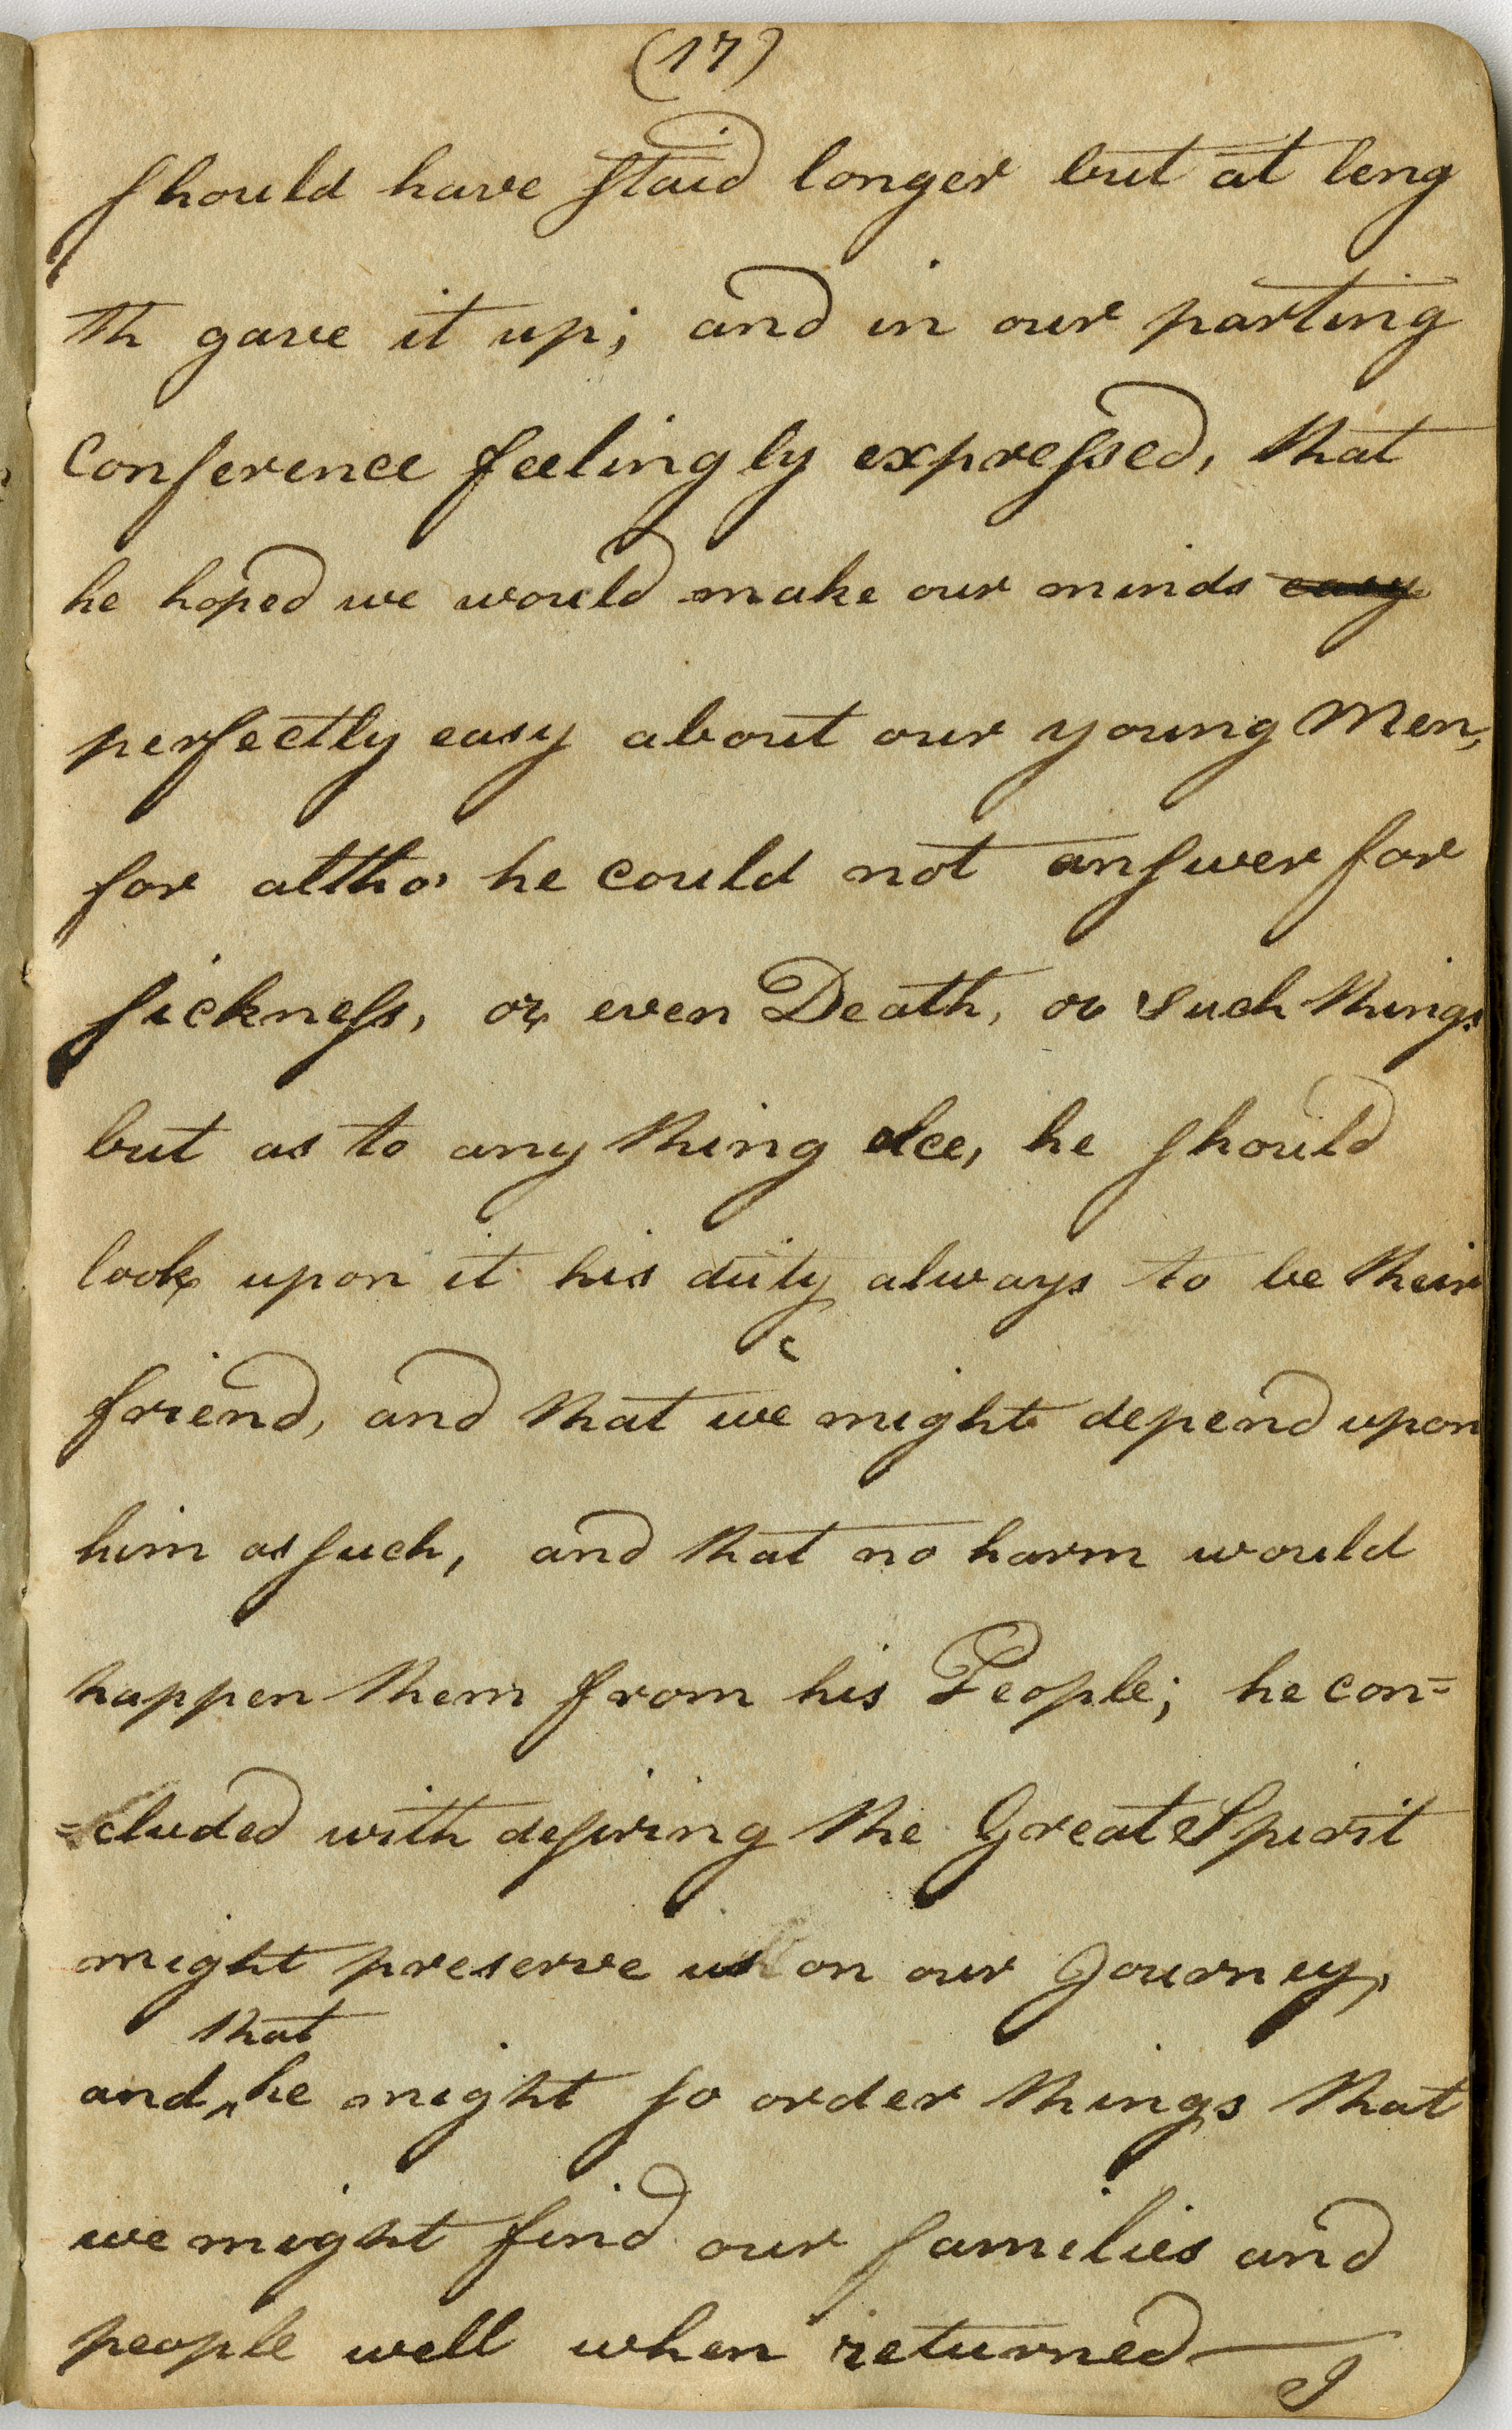 (17)
should have staid longer but at leng
th gave it up; and in our parting
Conference feelingly expressed, that
he hoped we would make our minds easy
perfectly easy about our young Men,
for altho' he could not answer for
sickness, or even Death, or such things
but as to any thing elce, he should
look upon it his duty always to be their
friend, and that we might depend upon
him as such, and that no harm would
happen them from his People; he con=
=cluded with desiring the Great Spirit
might preserve us on our Journey,
that
and ^ he might so order things that
we might find our families and
people well when returned— I